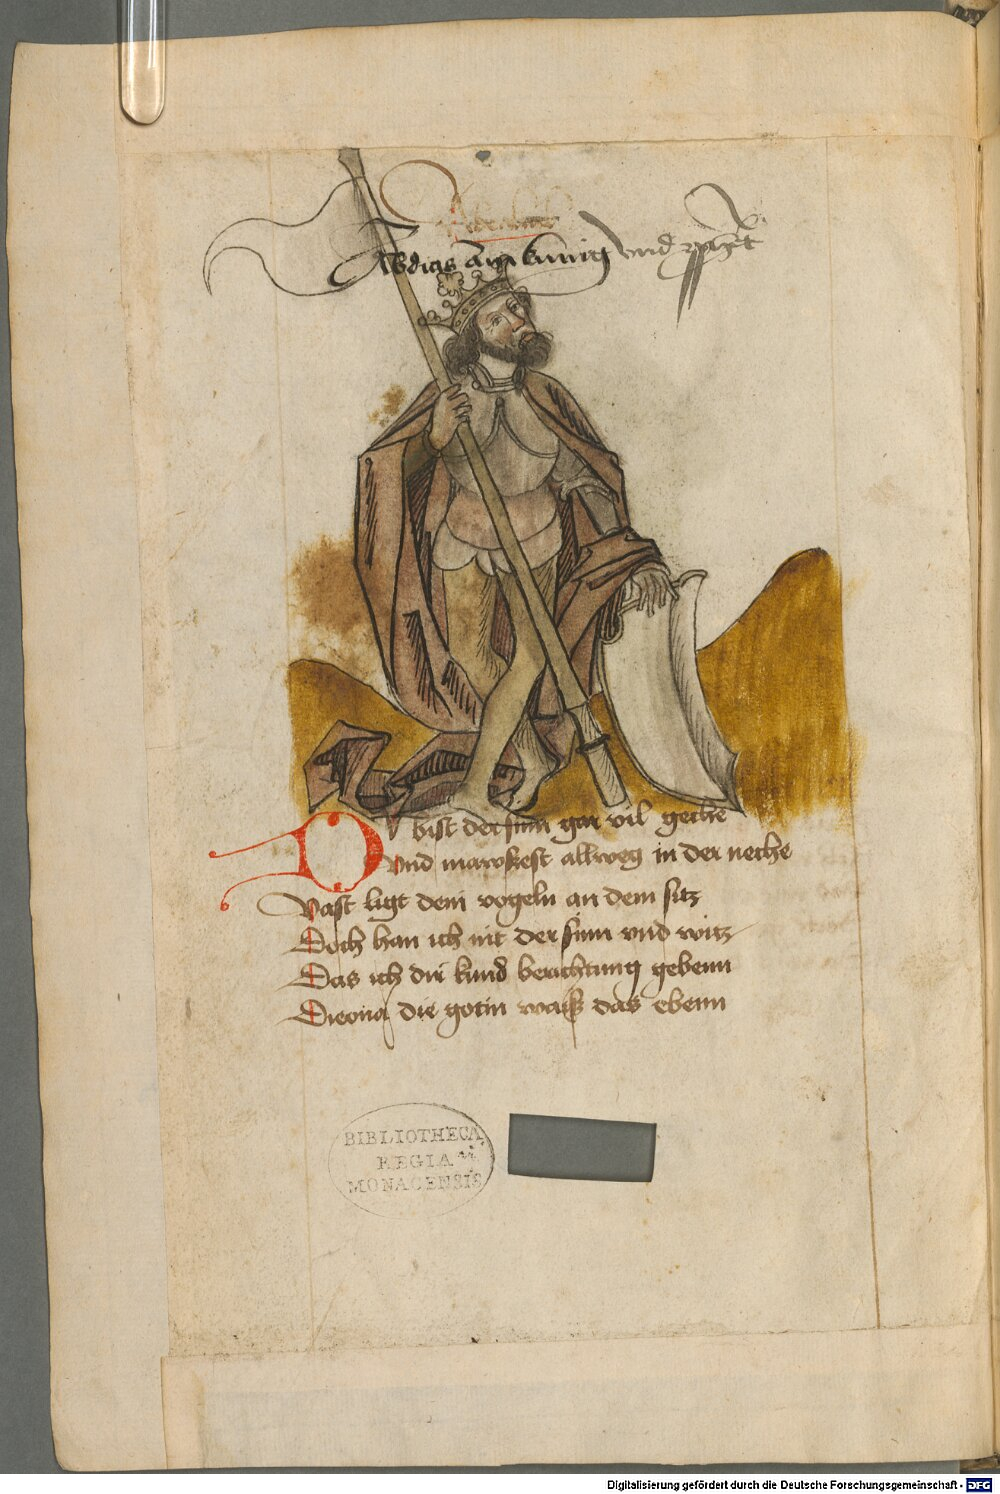 Abdias ain kunig vnd
DV bist der sinn gar vil geche
vnd mawsest allweg in der neche
Vast ligt dem vogeln an dem sitz
Doch han ich nit der sinn vnd witz
Das ich dir kund berichtung gebenn
Dieona die gotin waiß das ebenn
BIBLIOTHECA
REGIA
MONACENSIS
Digitalisierung gefördert durch die Deutsche Forschungsgemeinschaft - DFG